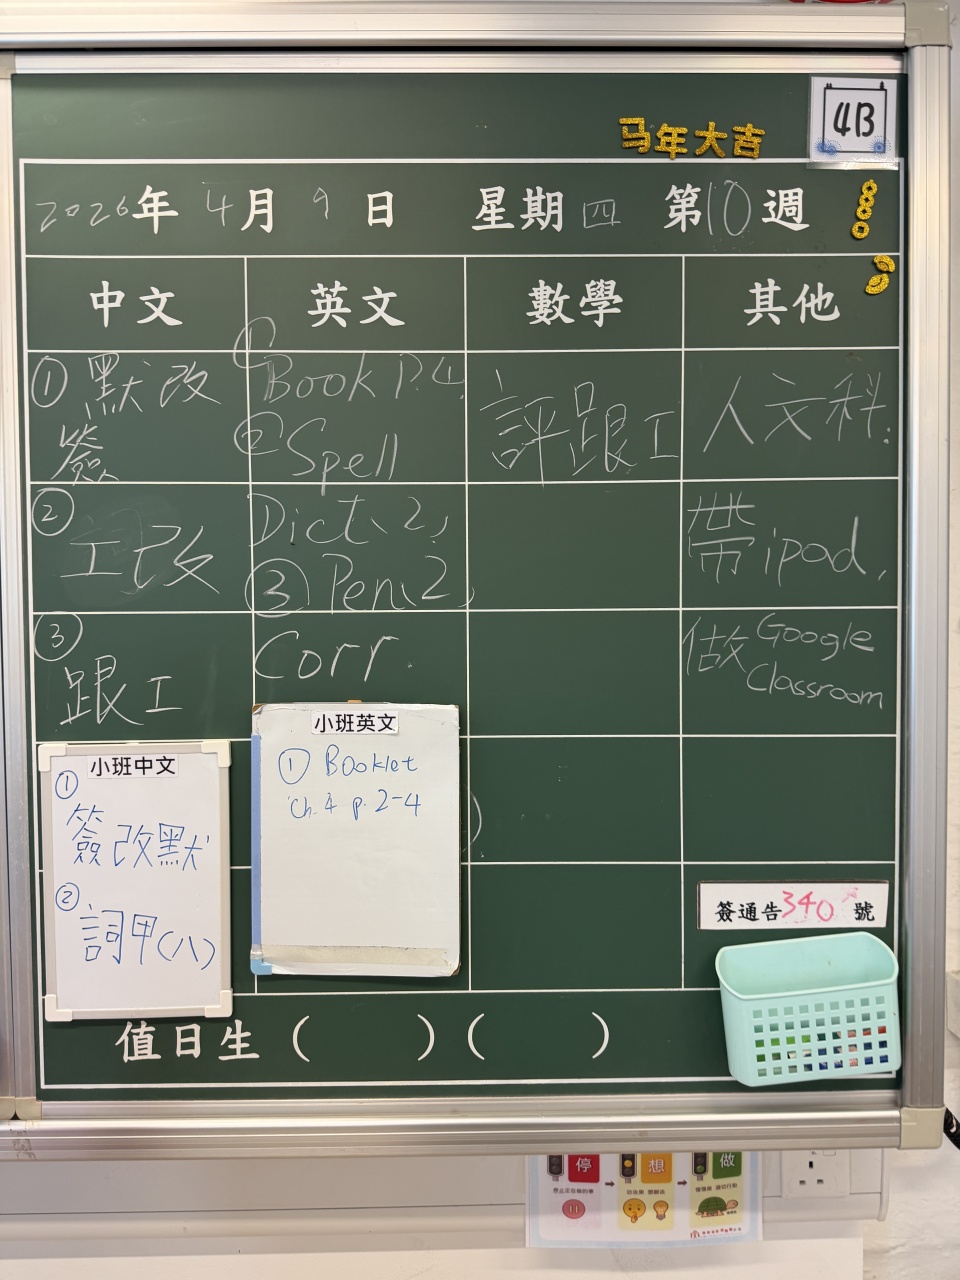 4B
马年大吉
2026年 4月 9日 星期四 第10週
中文 英文 數學 其他
① 默改
簽
② 工改
③ 跟工
① Book P.4,
② Spell
Dict、2,
③ Pen、2,
Corr.
評跟工
人文科.
帶ipad,
做Google
Classroom
小班中文
①
簽改默
②
詞甲(八)
小班英文
① Booklet
Ch. 4 p. 2-4
簽通告340號
值日生 ( ) ( )
停 想 做